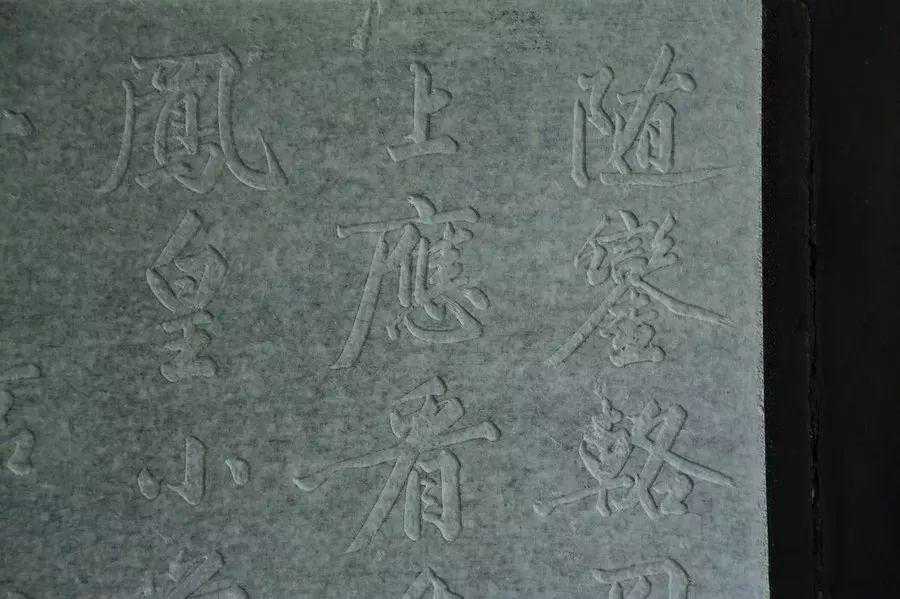 随鑾輅
上應看
鳳皇小